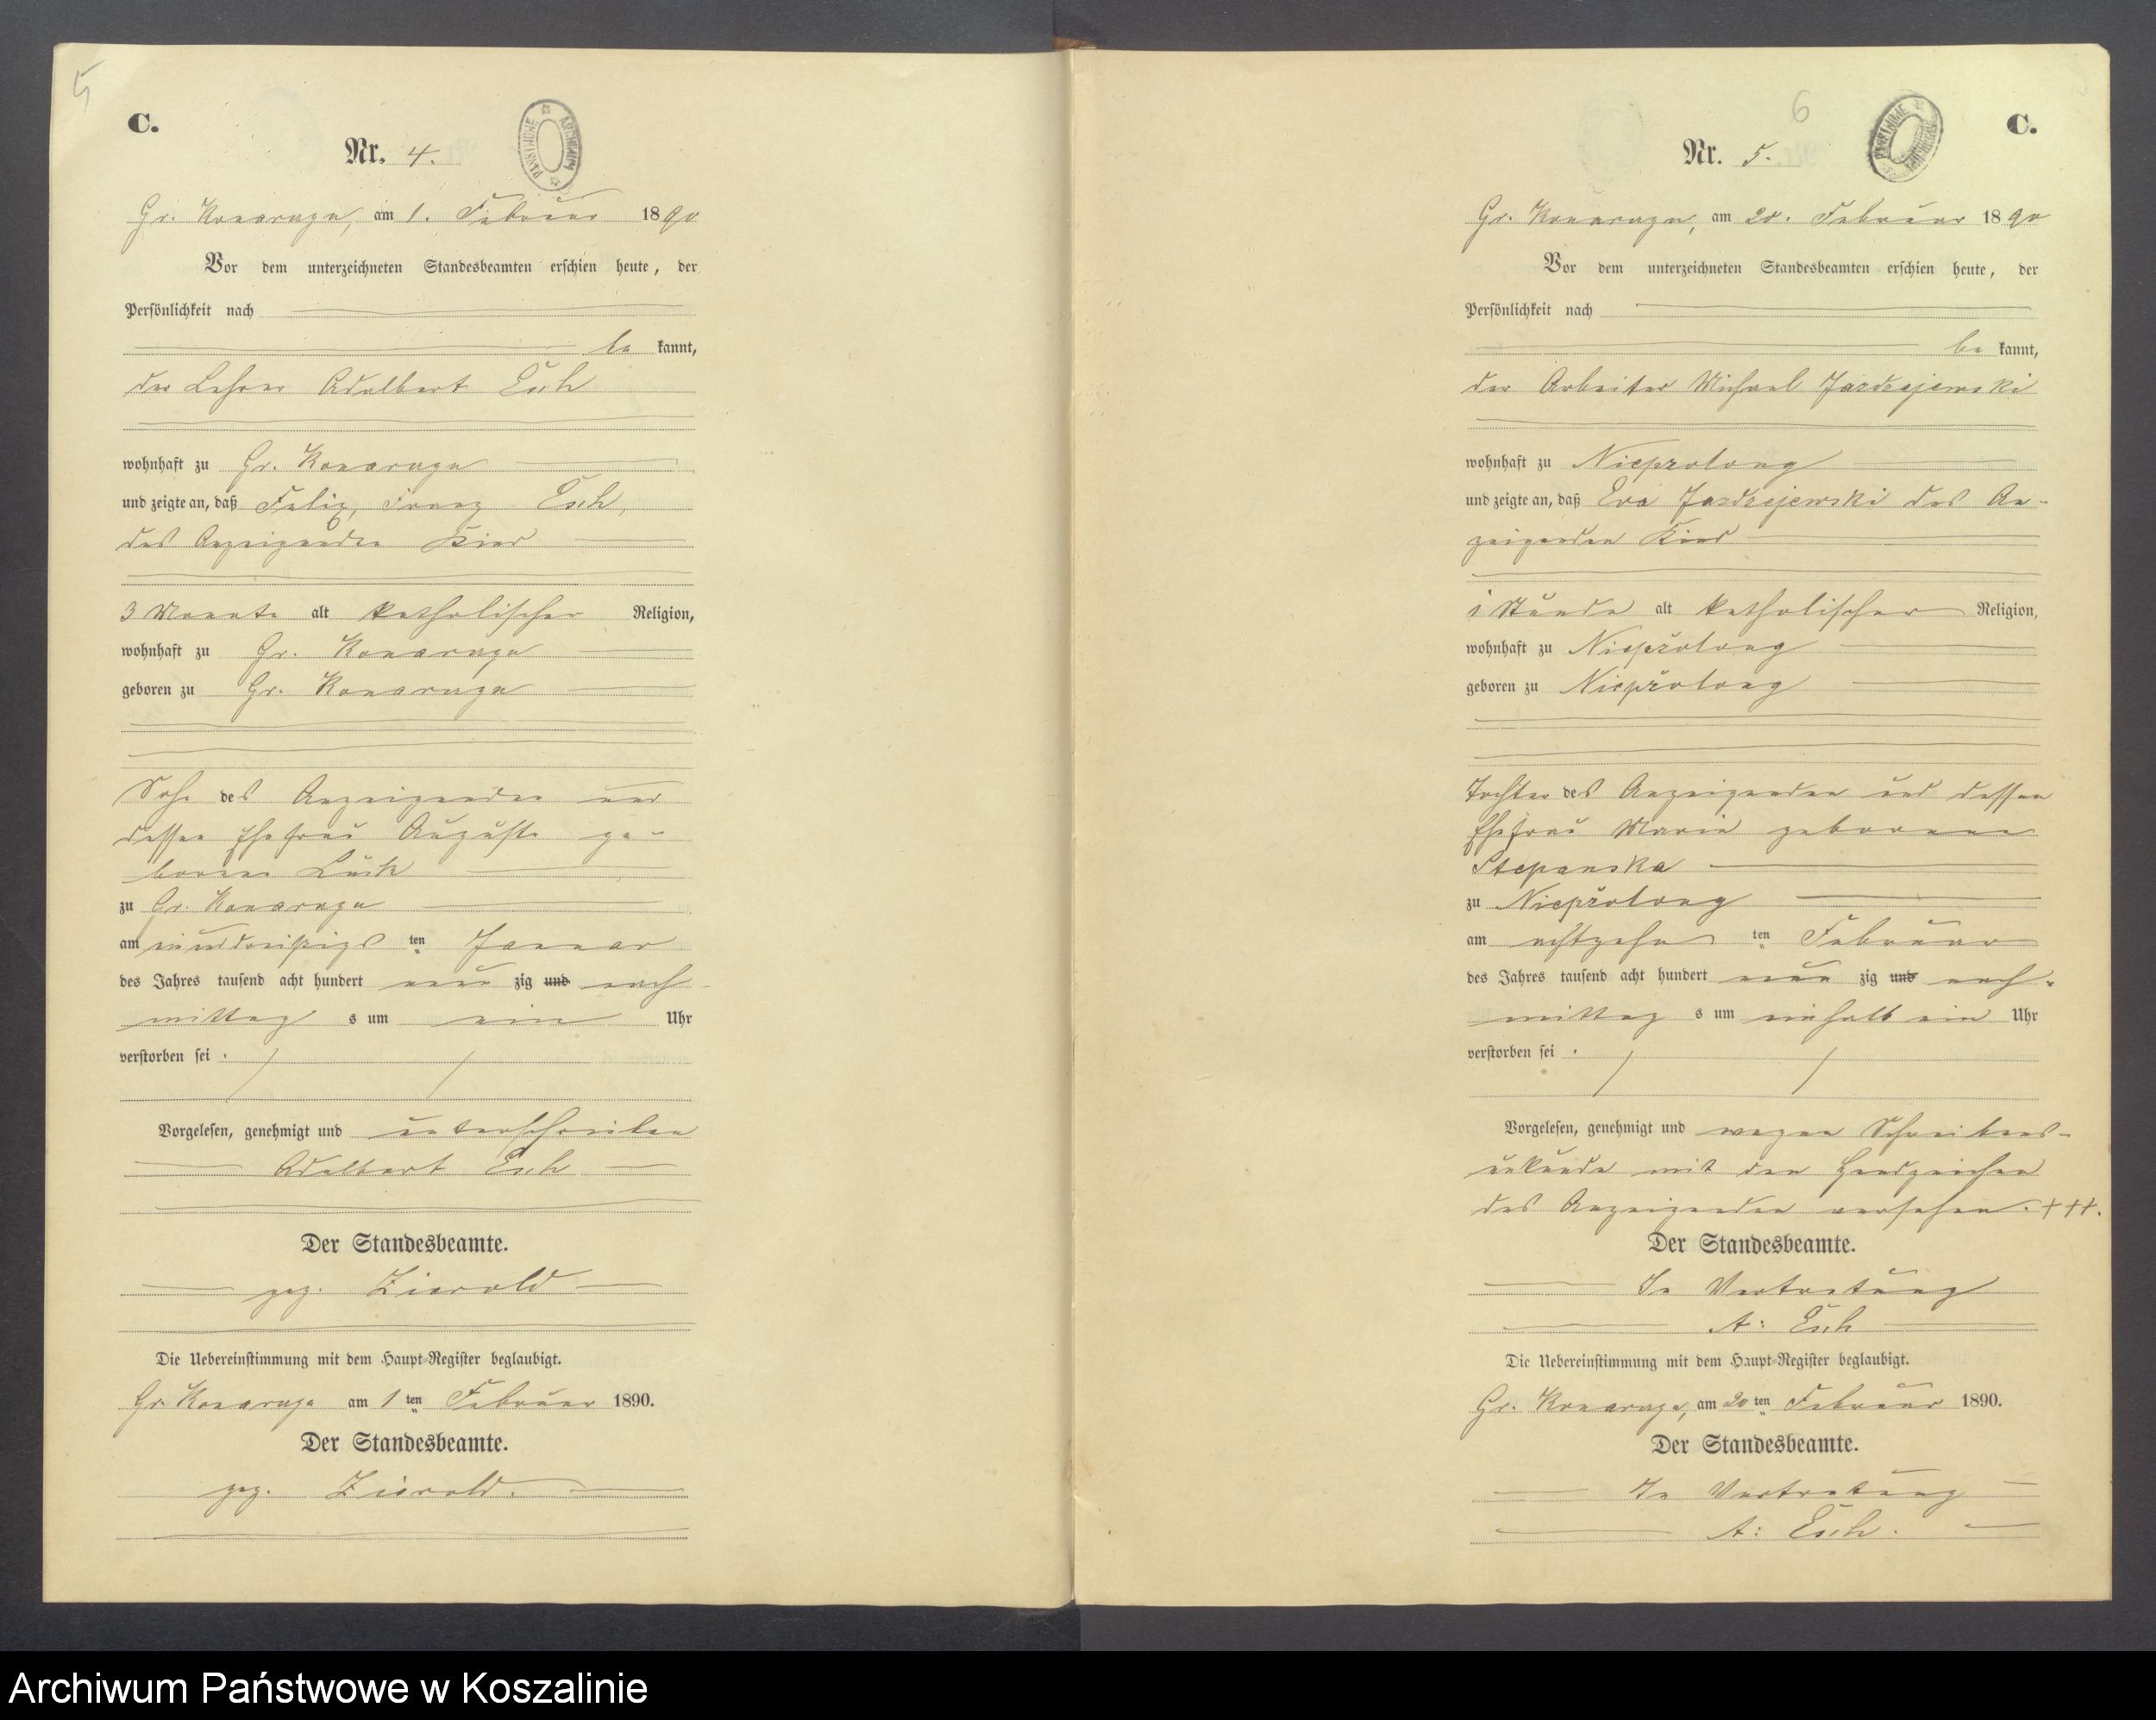 5
C.
PAŃSTWOWE ARCHIWUM
Nr. 4.
Gr. Konarczyn, am 1. Februar 1890
Vor dem unterzeichneten Standesbeamten erschien heute, der
Persönlichkeit nach
be kannt,
der Lehrer Adalbert Esch
wohnhaft zu Gr. Konarczyn
und zeigte an, daß Felix, Franz Esch,
des Anzeigenden Kind
3 Monate alt katholischer Religion,
wohnhaft zu Gr. Konarczyn
geboren zu Gr. Konarczyn
Sohn des Anzeigenden und
dessen Ehefrau Auguste ge-
borene Lück
zu Gr. Konarczyn
am einunddreißigs ten Januar
des Jahres tausend acht hundert neun zig und nach
mittag s um ein Uhr
verstorben sei.
Vorgelesen, genehmigt und unterschrieben
Adalbert Esch
Der Standesbeamte.
gez. Zierold
Die Uebereinstimmung mit dem Haupt-Register beglaubigt.
Gr. Konarczyn am 1 ten Februar 1890.
Der Standesbeamte.
gez. Zierold.
6
C.
PAŃSTWOWE ARCHIWUM
Nr. 5.
Gr. Konarczyn, am 20. Februar 1890
Vor dem unterzeichneten Standesbeamten erschien heute, der
Persönlichkeit nach
be kannt,
der Arbeiter Michael Jazdrejewski
wohnhaft zu Nieprolong
und zeigte an, daß Eva Jazdrejewski des An-
zeigenden Kind
1 Stunde alt katholischer Religion,
wohnhaft zu Nieprolong
geboren zu Nieprolong
Tochter des Anzeigenden und dessen
Ehefrau Maria geborenen
Stepanska
zu Nieprolong
am achtzehn ten Februar
des Jahres tausend acht hundert neun zig und nach-
mittag s um einhalb ein Uhr
verstorben sei.
Vorgelesen, genehmigt und wegen Schreibens-
unkunde mit den Handzeichen
des Anzeigenden versehen. +++.
Der Standesbeamte.
In Vertretung
A: Esch
Die Uebereinstimmung mit dem Haupt-Register beglaubigt.
Gr. Konarczyn, am 20 ten Februar 1890.
Der Standesbeamte.
In Vertretung
A: Esch.
Archiwum Państwowe w Koszalinie